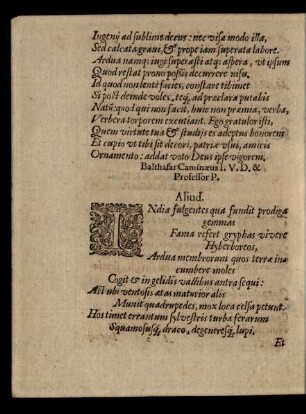 Ingenij ad sublime decens: nec visa modo illa,
Sed calcata graui, & prope iam superata labore.
Ardua namq; iugi superasti atq; aspera, vt ipsum
Quod restat prono possis decurrere nisu,
Id quod non lentè facies, constare tibimet
Si post deinde voles, teq; ad præclara putabis
Natũ: quod qui non facit, huic non præmia, verba,
Verbera torporem excutiant. Ego gratulor isti,
Quem virtute tua & studijs es adeptus honorem
Et cupio vt tibi sit decori, patriæ vsui, amicis
Ornamento: addat voto Deus ipse vigorem.
Balthasar Caminæus I. V. D. &
Professor P.
Aliud.
INdia fulgentes qua fundit prodiga
gemmas
Fama refert gryphas vivere
Hyberboreos,
Ardua membrorum quos terræ in-
cumbere moles
Cogit & in gelidis vallibus antra sequi:
Ast ubi ventosis ætas maturior alis
Munit quadrupedes, mox loca celsa petunt.
Hos timet errantum sylvestris turba ferarum
Squamosusq; draco, degeneresq; lupi.
Et